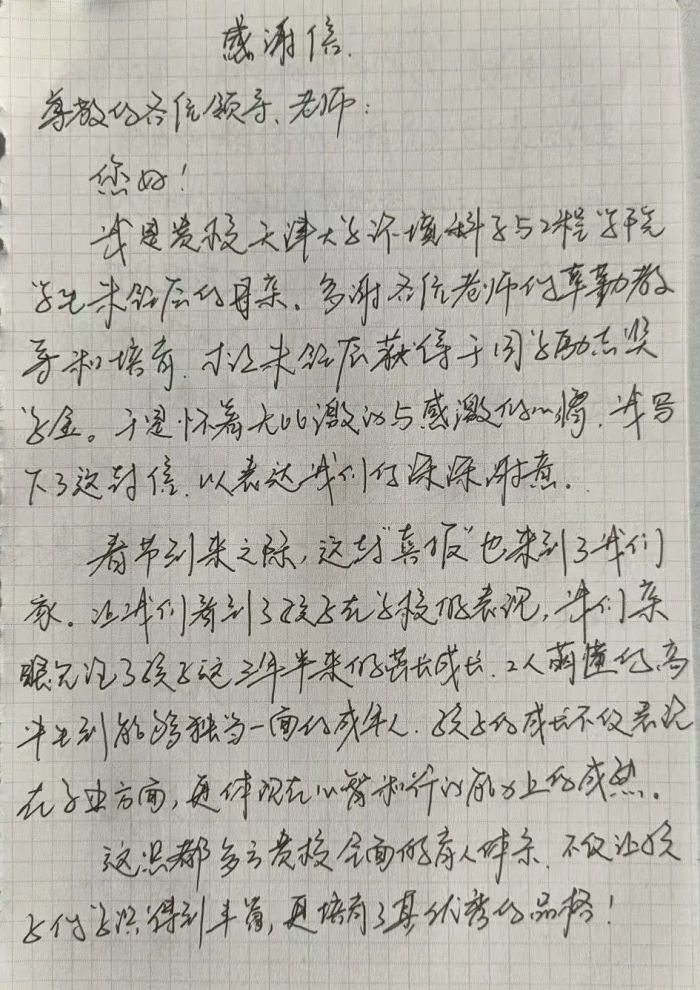 感谢信.
尊敬的各位领导、老师：
您好！
我是贵校天津大学环境科学与工程学院
学生朱铭辰的母亲。多谢各位老师的辛勤教
导和培育，才让朱铭辰获得了同学励志奖
学金。于是怀着无比激动与感激的心情，我写
下了这封信，以表达我们的深深谢意。
春节到来之际，这封“喜报”也来到了我们
家。让我们看到了孩子在学校的表现，我们亲
眼见证了孩子这三年半来的茁长成长，从懵懂的高
中生到能够独当一面的成年人，孩子的成长不仅表现
在学业方面，更体现在心智和行动能力上的成熟。
这些都多亏贵校全面的育人体系，不仅让孩
子的学识得到丰富，更培育了其优秀的品格！